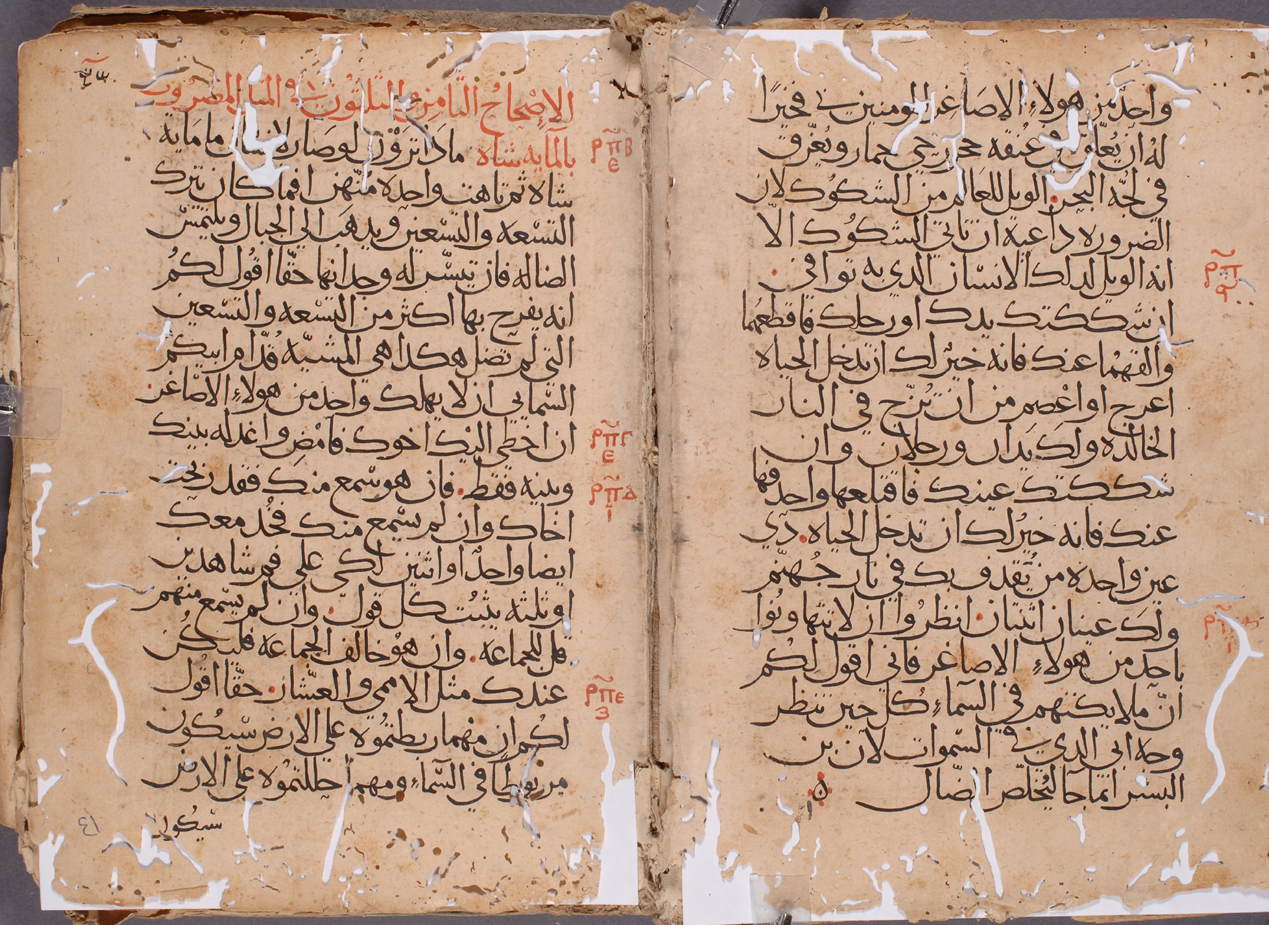 واحد من هولاء الاصاغر المومنين بي فخيرًا
له ان يُعلّق في عُنقه حجر رحي حمار ويُغرّق
في لجّة البحر. الويل للعالم من الشكوك لان
الضروره داعية ان تاتي الشكوك الّا
انه الويل لدلك الانسان الدي به توافي.
ان شككتك يدك او رجلك فاقطعهما
والقهما عنك فانه خيرٌ لك ان تدخل الحياه
اعرج او اعصم من ان تُزجّ في النار
الخالده ولك يدان ورجلان وان
شككتك عينك فاقلعها واحدفها
عنك فانه خيرٌ لك ان تدخل الحياه. دي
عين واحده من يُقدف بك في نار جُهنّم
ولك عينان اثنتان. انظروا ان لا تتهاونُوا
باحد من هولاءِ الاصاغر فاني اقول لكم
انّ ملايكتهم في السماءِ كُل حين تنظر
وجه ابي الدي في السموات لان بن
البشر انما جآ ليُخلّص الضّال
ⲣⲡⲃ
ⲉ
الاصحاحُ الثامن والثلثون في المثل المضروب
بالمايه شاه ما دا تروْن لو صار لانسان ما مايه
شاه ثم تاهت واحده منهن افما كان يترك
التسْعه والتسْعين ويدهب الي الجبال ويلتمسْ
الضاله فان تيسّر له وجدانها حقّا اقُول لكمُ
انه يفرح بها اكثر من التسْعه والتسْعين
التي لم تضل هكدا هي المشيّه قُدام ابيكم
السّمايي ان لا يهلك واحد من هولاءِ الاصاغر.
ان اخطي اليْك اخوك فامْضِ واعْدله بينك
وبينه فقط. فان هو سْمع منك فقد ربحْت
اخاك وان لم يسْمع منك فخُد معك
ايضا واحدًا او اثنين لكي علي فم شاهدين
او ثلثه يثبُت كل قول. وان لم يسْمع منهم
قل للجماعه. وان هوْ خالف الجماعه فليكُن
عندك مثل الاممي والعشّار. حقّا اقول
لكُم ان مهْما ربطتمُوه علي الارض سْيكُون
مربُوطًا في السّماءِ ومهما حللتمُوه علي الارض
سْيكون
ⲣⲡⲅ
ⲉ
ⲣⲡⲇ
ⲓ
ⲣⲡⲉ
ⲍ